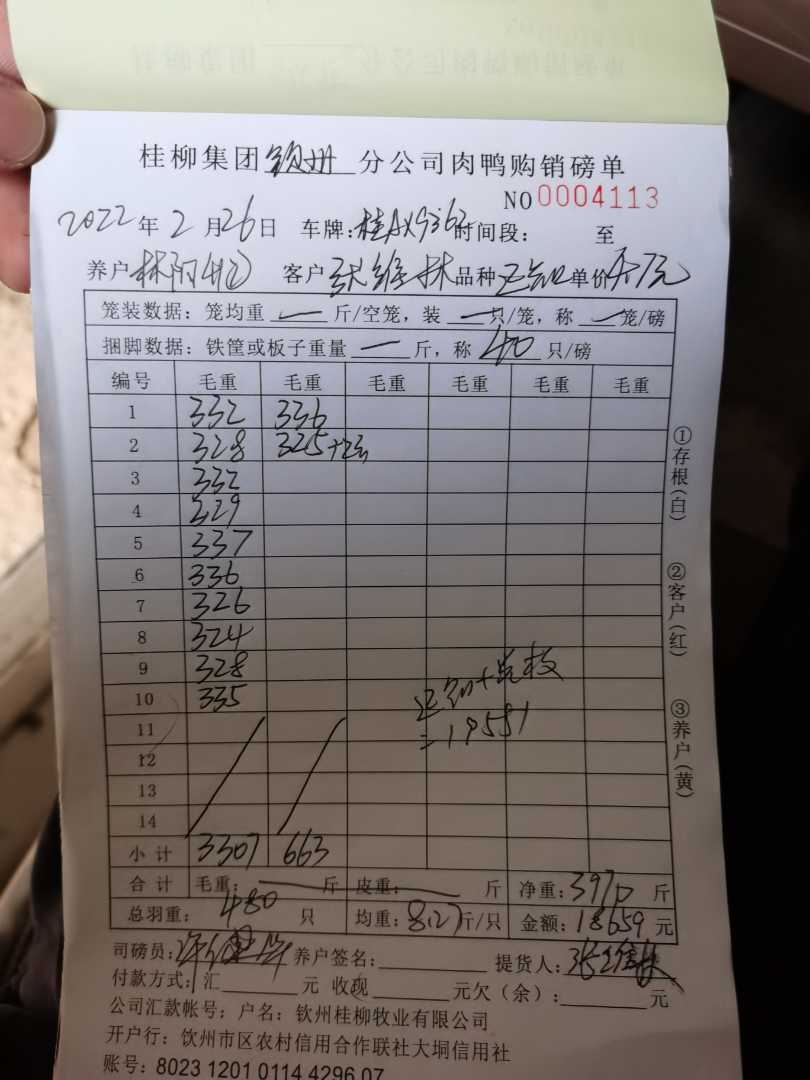 桂柳集团钦州分公司肉鸭购销磅单
NO 0004113
2022年2月26日 车牌: 时间段: 至
养户 客户张维林 品种 单价4.7元
笼装数据: 笼均重 一 斤/空笼, 装 一 只/笼, 称 一 笼/磅
捆脚数据: 铁筐或板子重量 一 斤, 称 40 只/磅
编号 毛重 毛重 毛重 毛重 毛重 毛重
1 332 336
2 328 325
3 332
4 329
5 337
6 336
7 326
8 324
9 328
10 335
11
12
13
14
=19581
小计 3307 663
合计 毛重: 斤 皮重: 斤 净重: 3970 斤
总羽重: 480 只 均重: 8.27 斤/只 金额: 18659 元
司磅员: 养户签名: 提货人: 张维林
付款方式: 汇 元 收现 元欠(余): 元
公司汇款帐号; 户名: 钦州桂柳牧业有限公司
开户行: 钦州市区农村信用合作联社大垌信用社
账号: 8023 1201 0114 4296 07
①存根(白)
②客户(红)
③养户(黄)